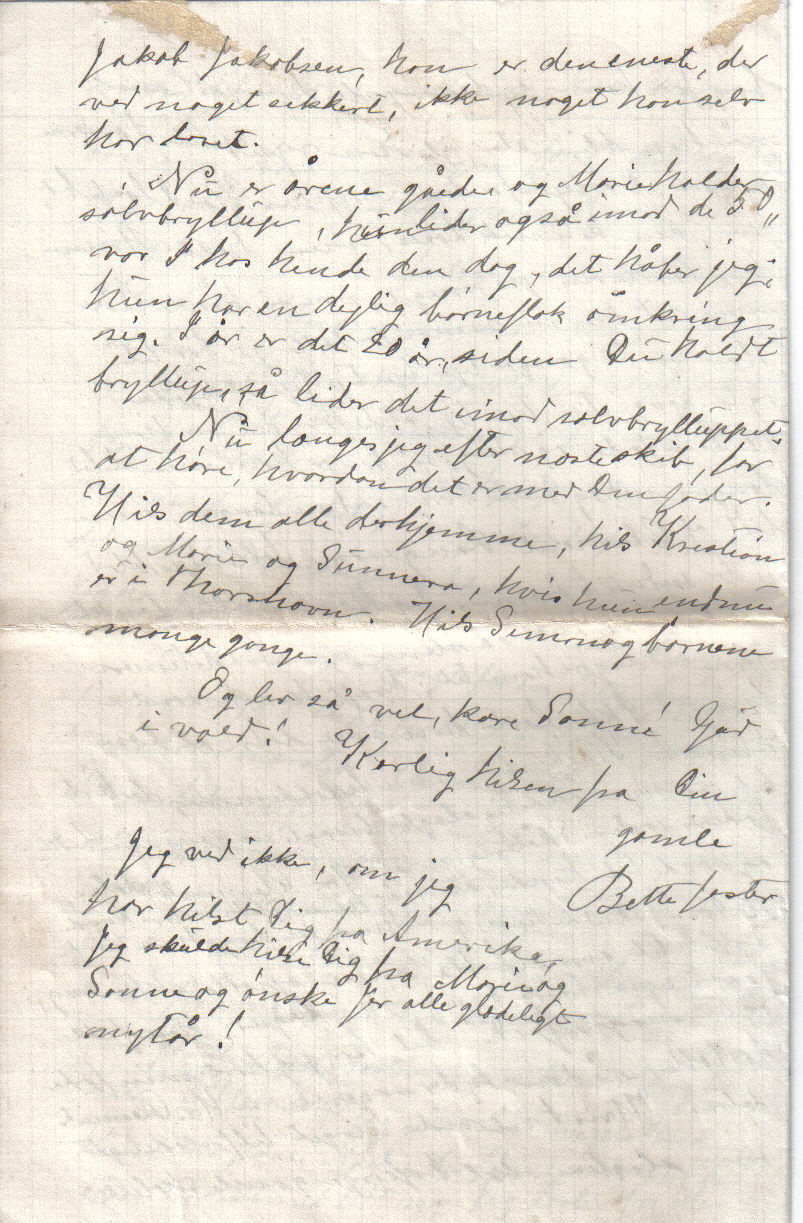 Jakob Jakobsen, han er den eneste, der
ved noget sikkert, ikke noget han selv
har lavet.
Nu er årene gåede og Marie holder
sølvbryllup, hun lider også imod de 50,,
var I hos hende den dag, det håber jeg,
hun har en dejlig børneflok omkring
sig. I år er det 20 år, siden Du holdt
bryllup, så lider det imod sølvbrylluppet.
Nu længes jeg efter næste skib, for
at høre, hvordan det er med Din fader.
Hils dem alle derhjemme, hils Kristian
og Marie og Sunneva, hvis hun endnu
er i Thorshavn. Hils Simon og børnene
mange gange.
Og lev så vel, kære Sanné Gud
i vold! Kærlig hilsen fra Din
gamle
Bette faster
Jeg ved ikke, om jeg
har hilst Dig fra Amerika,
jeg skulde hilse Dig fra Marie og
Sanne og ønske Jer alle glædeligt
nytår!